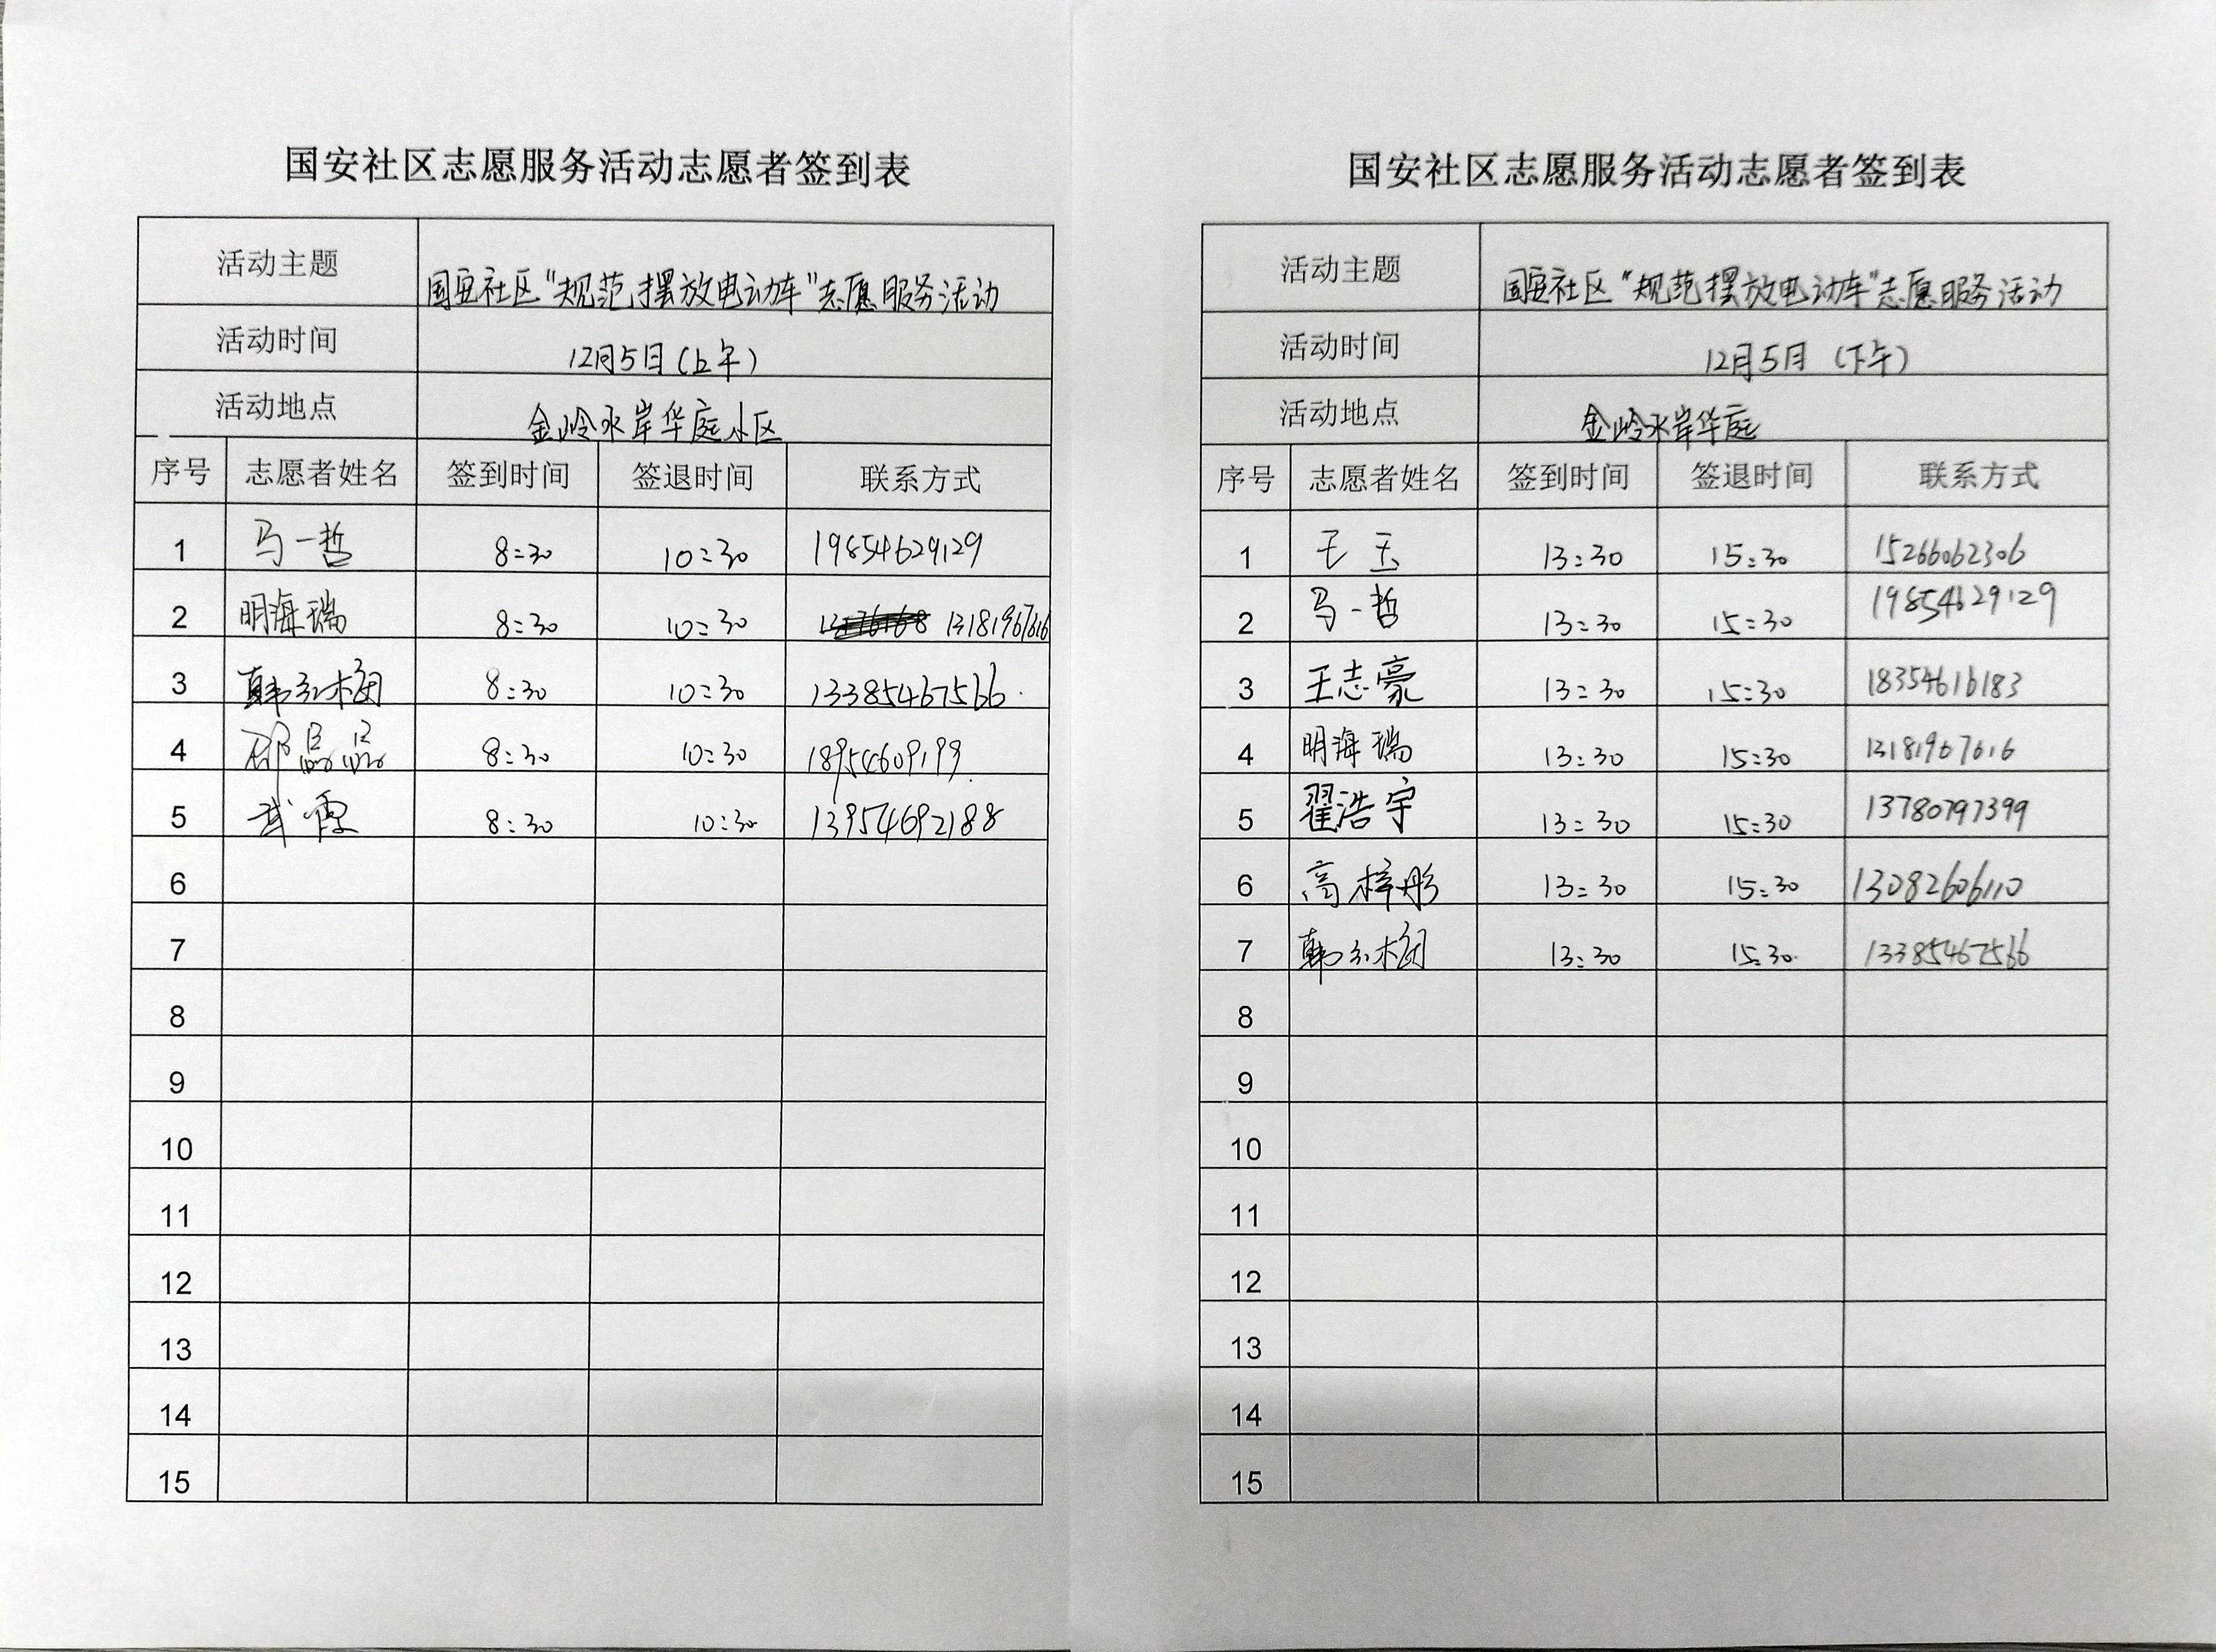 国安社区志愿服务活动志愿者签到表
活动主题 国安社区“规范摆放电动车”志愿服务活动
活动时间 12月5日(上午)
活动地点 金岭水岸华庭小区
序号 志愿者姓名 签到时间 签退时间 联系方式
1 马一哲 8:30 10:30 19854629129
2 明海瑞 8:30 10:30 13181967616
3 韩 8:30 10:30 13385467566
4 邵 8:30 10:30 18954609199
5 武霞 8:30 10:30 13954692188
6
7
8
9
10
11
12
13
14
15
国安社区志愿服务活动志愿者签到表
活动主题 国安社区“规范摆放电动车”志愿服务活动
活动时间 12月5日(下午)
活动地点 金岭水岸华庭
序号 志愿者姓名 签到时间 签退时间 联系方式
1 王玉 13:30 15:30 15266062306
2 马一哲 13:30 15:30 19854629129
3 王志豪 13:30 15:30 18354616183
4 明海瑞 13:30 15:30 13181967616
5 翟浩宇 13:30 15:30 13780797399
6 高梓彤 13:30 15:30 13082606110
7 韩 13:30 15:30 13385467566
8
9
10
11
12
13
14
15